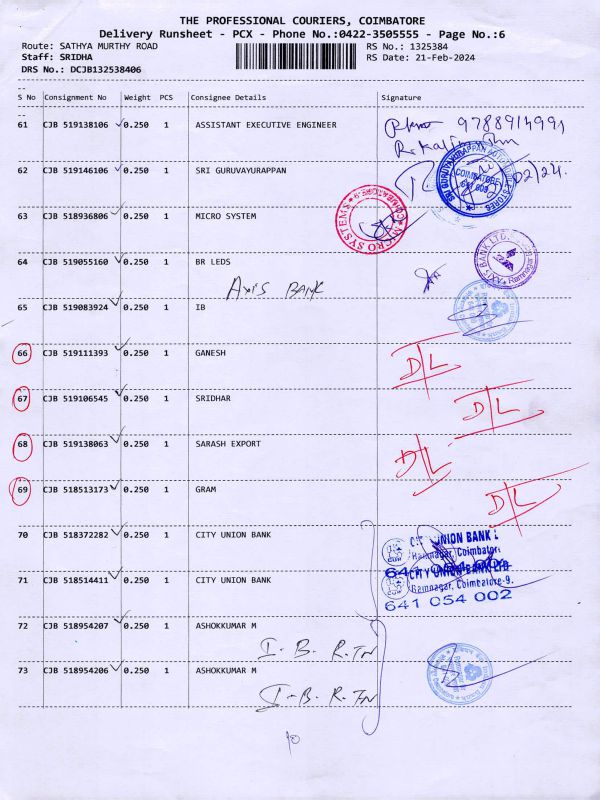 THE PROFESSIONAL COURIERS, COIMBATORE
Delivery Runsheet - PCX - Phone No.:0422-3505555 - Page No.:6
Route: SATHYA MURTHY ROAD RS No.: 1325384
Staff: SRIDHA RS Date: 21-Feb-2024
DRS No.: DCJB132538406
S No Consignment No Weight PCS Consignee Details Signature
61 CJB 519138106 0.250 1 ASSISTANT EXECUTIVE ENGINEER 9788914991
62 CJB 519146106 0.250 1 SRI GURUVAYURAPPAN COIMBATORE 02/24.
63 CJB 518936806 0.250 1 MICRO SYSTEM MICRO SYSTEMS
64 CJB 519055160 0.250 1 BR LEDS AXIS BANK LTD. Ramnagar
AXIS BANK
65 CJB 519083924 0.250 1 IB
66 CJB 519111393 0.250 1 GANESH D/L
67 CJB 519106545 0.250 1 SRIDHAR D/L
68 CJB 519138063 0.250 1 SARASH EXPORT D/L
69 CJB 518513173 0.250 1 GRAM D/L
70 CJB 518372282 0.250 1 CITY UNION BANK UNION BANK
Ramnagar, Coimbator
71 CJB 518514411 0.250 1 CITY UNION BANK CITY UNION BANK LTD
Ramnagar, Coimbatore-9.
641 054 002
72 CJB 518954207 0.250 1 ASHOKKUMAR M
I.B.R.TN
73 CJB 518954206 0.250 1 ASHOKKUMAR M
I.B.R.TN